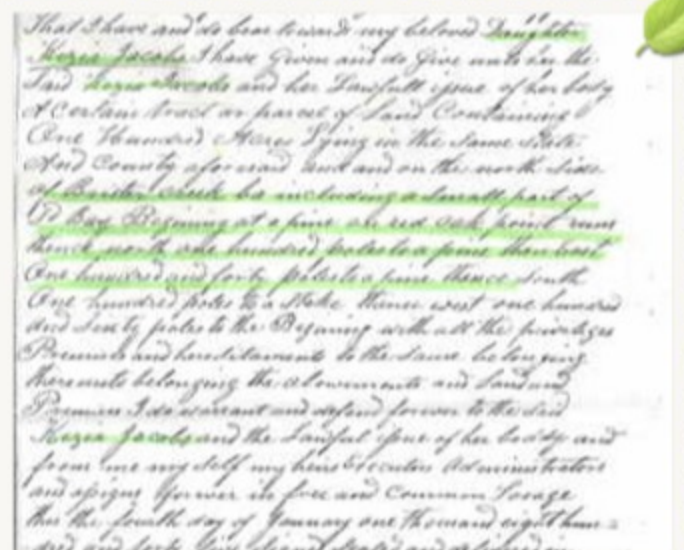 That I have and do bear towards my beloved Daughter
Kezia Jacobs I have Given and do Give unto her the
Said Kezia Jacobs and her Lawfull issue of her body
A Certain tract or parcel of Land Containing
One Hundred Acres Lying in the Same State
And County aforesaid and on the north Side
of creek be including a small part of
Bay Begining at a pine on red oak point runs
thence north one hundred poles to a pine then East
One hundred and forty poles to a pine thence South
One hundred poles to a Stake thence west one hundred
and Sixty poles to the Begining with all the privileges
Premises and hereditaments to the Same belonging
thereunto belonging the and Land and
Premises I do warrant and defend forever to the Said
Kezia Jacobs and the Lawful issue of her boddy and
from me my self my heirs Executors Administrators
and assigns forever in free and Common Socage
this the fourth day of January one thousand eight hun=
dred and forty five Signed Sealed and delivered in